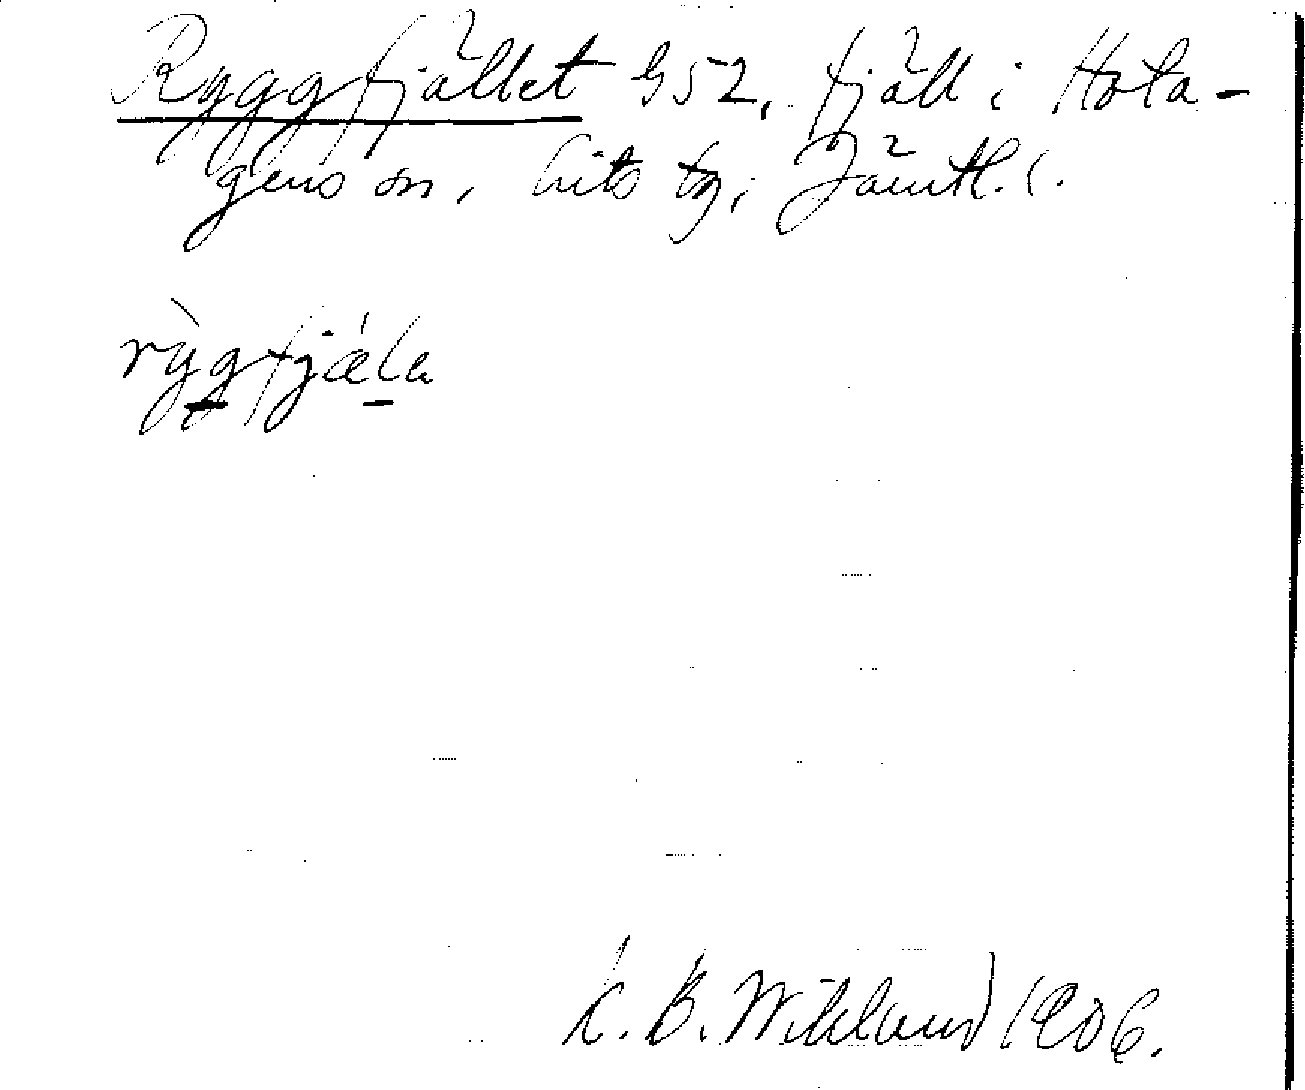 Ryggfjället 952, fjäll i Hota-
gens sn, Lits tg, Jämtl. l.
rỳgfjǽla
K. B. Wiklund 1906.